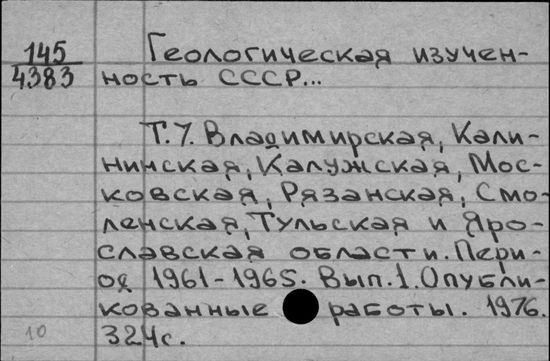 145
4383
Геологическая изучен-
ность СССР...
Т.7. Владимирская, Кали-
нинская, Калужская, Мос-
ковская, Рязанская, Смо-
ленская, Тульская и Яро-
славская области. Пери-
од 1961-1965. Вып.1. Опубли-
кованные работы. 1976.
324с.
10